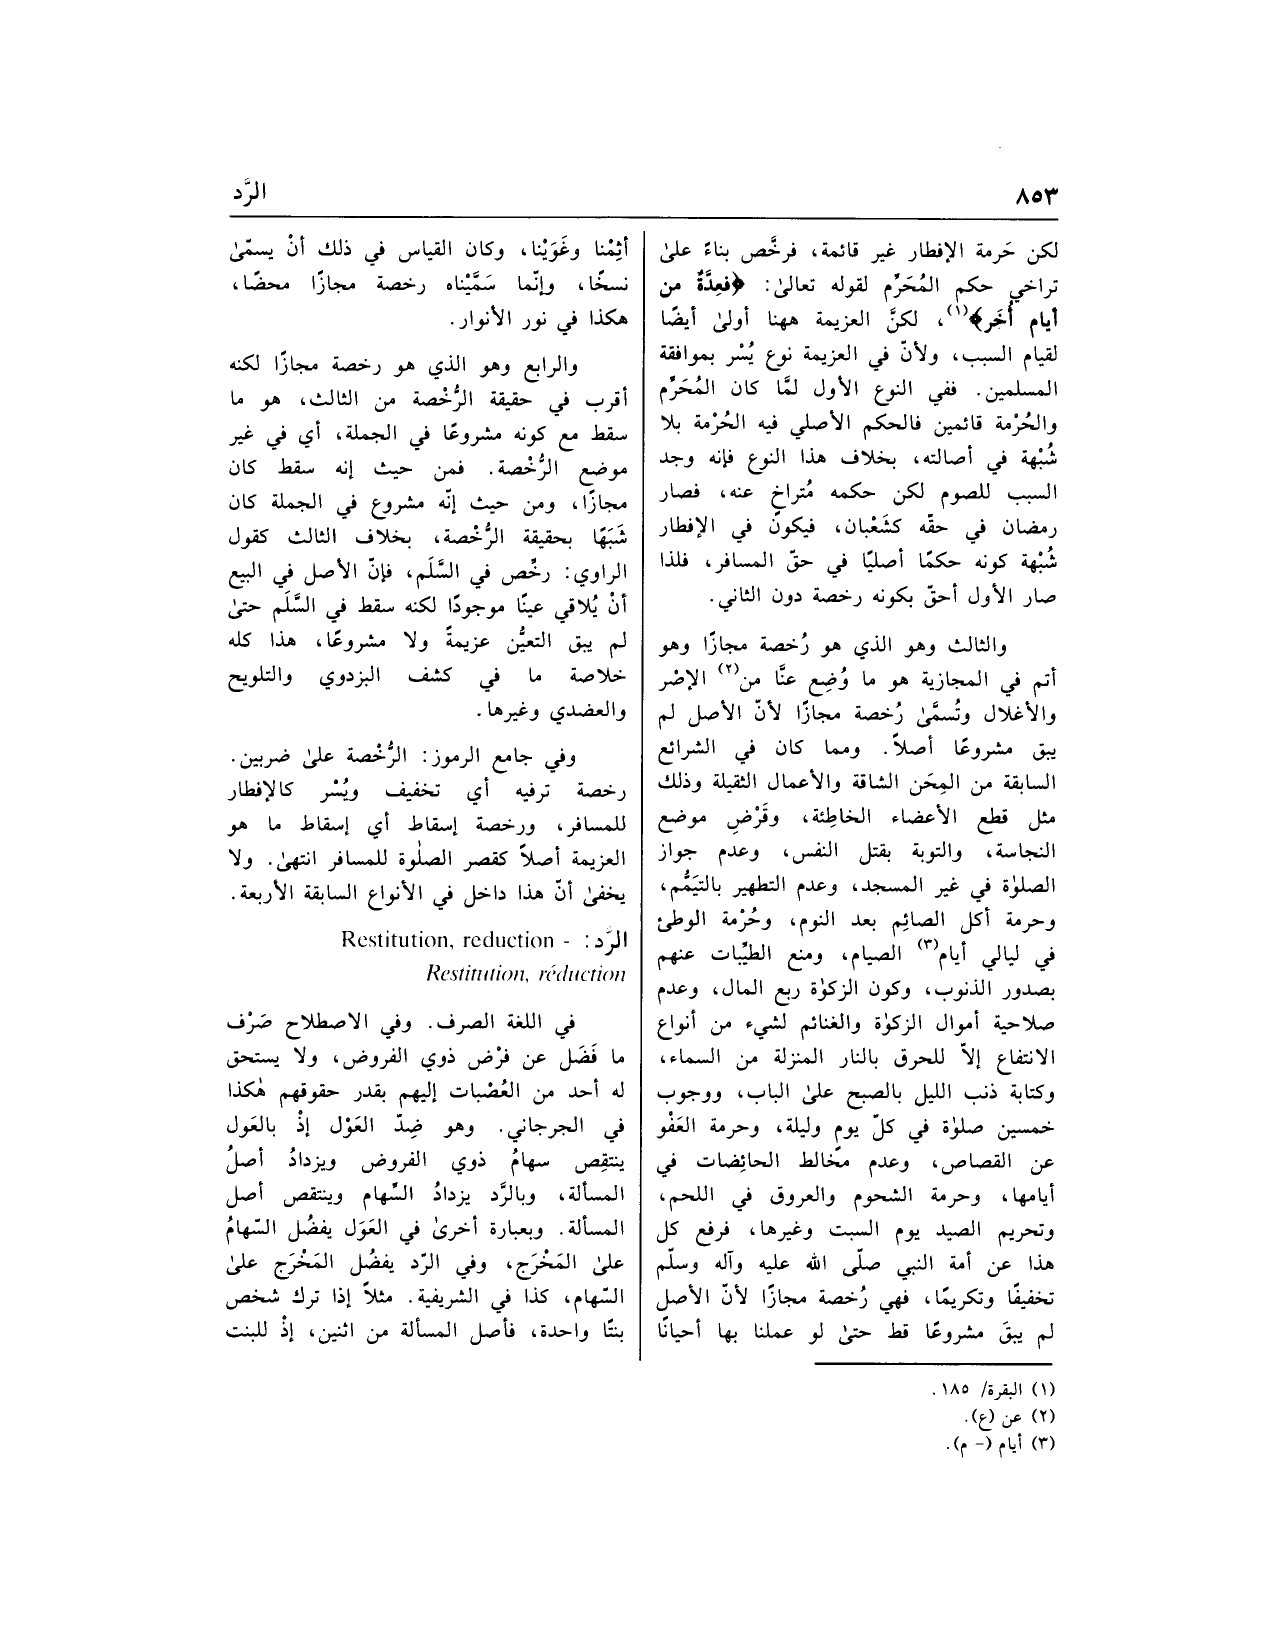 ٨٥٣
الرَّد
لكن حَرمة الإفطار غير قائمة، فرخَّص بناءً علىٰ
تراخي حكم المُحَرِّم لقوله تعالىٰ: ﴿فعِدَّةٌ من
أيام أُخَر﴾(١)، لكنَّ العزيمة ههنا أولىٰ أيضًا
لقيام السبب، ولأنّ في العزيمة نوع يُسْر بموافقة
المسلمين. ففي النوع الأول لمَّا كان المُحَرِّم
والحُرْمة قائمين فالحكم الأصلي فيه الحُرْمة بلا
شُبْهة في أصالته، بخلاف هذا النوع فإنه وجد
السبب للصوم لكن حكمه مُتراخٍ عنه، فصار
رمضان في حقّه كشَعْبان، فيكون في الإفطار
شُبْهة كونه حكمًا أصليًا في حقّ المسافر، فلذا
صار الأول أحقّ بكونه رخصة دون الثاني.
والثالث وهو الذي هو رُخصة مجازًا وهو
أتم في المجازية هو ما وُضِع عنَّا من(٢) الإضْر
والأغلال وتُسمَّىٰ رُخصة مجازًا لأنّ الأصل لم
يبق مشروعًا أصلاً. ومما كان في الشرائع
السابقة من المِحَن الشاقة والأعمال الثقيلة وذلك
مثل قطع الأعضاء الخاطِئة، وقَرْضِ موضع
النجاسة، والتوبة بقتل النفس، وعدم جواز
الصلوٰة في غير المسجد، وعدم التطهير بالتيَمُّم،
وحرمة أكل الصائِم بعد النوم، وحُرْمة الوطئ
في ليالي أيام(٣) الصيام، ومنع الطيِّبات عنهم
بصدور الذنوب، وكون الزكوٰة ربع المال، وعدم
صلاحية أموال الزكوٰة والغنائم لشيء من أنواع
الانتفاع إلاّ للحرق بالنار المنزلة من السماء،
وكتابة ذنب الليل بالصبح علىٰ الباب، ووجوب
خمسين صلوٰة في كلّ يوم وليلة، وحرمة العَفْو
عن القصاص، وعدم مخالط الحائِضات في
أيامها، وحرمة الشحوم والعروق في اللحم،
وتحريم الصيد يوم السبت وغيرها، فرفع كل
هذا عن أمة النبي صلّى الله عليه وآله وسلّم
تخفيفًا وتكريمًا، فهي رُخصة مجازًا لأنّ الأصل
لم يبقَ مشروعًا قط حتىٰ لو عملنا بها أحيانًا
أثِمْنا وغَوَيْنا، وكان القياس في ذلك أنْ يسمّىٰ
نسخًا، وإنّما سَمَّيْناه رخصة مجازًا محضًا،
هكذا في نور الأنوار.
والرابع وهو الذي هو رخصة مجازًا لكنه
أقرب في حقيقة الرُّخْصة من الثالث، هو ما
سقط مع كونه مشروعًا في الجملة، أي في غير
موضع الرُّخْصة. فمن حيث إنه سقط كان
مجازًا، ومن حيث إنّه مشروع في الجملة كان
شَبَهًا بحقيقة الرُّخْصة، بخلاف الثالث كقول
الراوي: رخِّص في السَّلَم، فإنّ الأصل في البيع
أنْ يُلاقي عينًا موجودًا لكنه سقط في السَّلَم حتىٰ
لم يبق التعيُّن عزيمةً ولا مشروعًا، هذا كله
خلاصة ما في كشف البزدوي والتلويح
والعضدي وغيرها.
وفي جامع الرموز: الرُّخْصة علىٰ ضربين.
رخصة ترفيه أي تخفيف ويُسْر كالإفطار
للمسافر، ورخصة إسقاط أي إسقاط ما هو
العزيمة أصلاً كقصر الصلٰوة للمسافر انتهىٰ. ولا
يخفىٰ أنّ هذا داخل في الأنواع السابقة الأربعة.
الرَّد: - Restitution, reduction
Restitution, réduction
في اللغة الصرف. وفي الاصطلاح صَرْف
ما فَضَل عن فرْض ذوي الفروض، ولا يستحق
له أحد من العُصْبات إليهم بقدر حقوقهم هٰكذا
في الجرجاني. وهو ضِدّ العَوْل إذْ بالعَول
ينتقِص سهامُ ذوي الفروض ويزدادُ أصلُ
المسألة، وبالرَّد يزدادُ السِّهام وينتقص أصل
المسألة. وبعبارة أخرىٰ في العَوَل يفضُل السِّهامُ
علىٰ المَخْرَج، وفي الرّد يفضُل المَخْرَج علىٰ
السِّهام، كذا في الشريفية. مثلاً إذا ترك شخص
بنتًا واحدة، فأصل المسألة من اثنين، إذْ للبنت
(١) البقرة/ ١٨٥.
(٢) عن (ع).
(٣) أيام (- م).